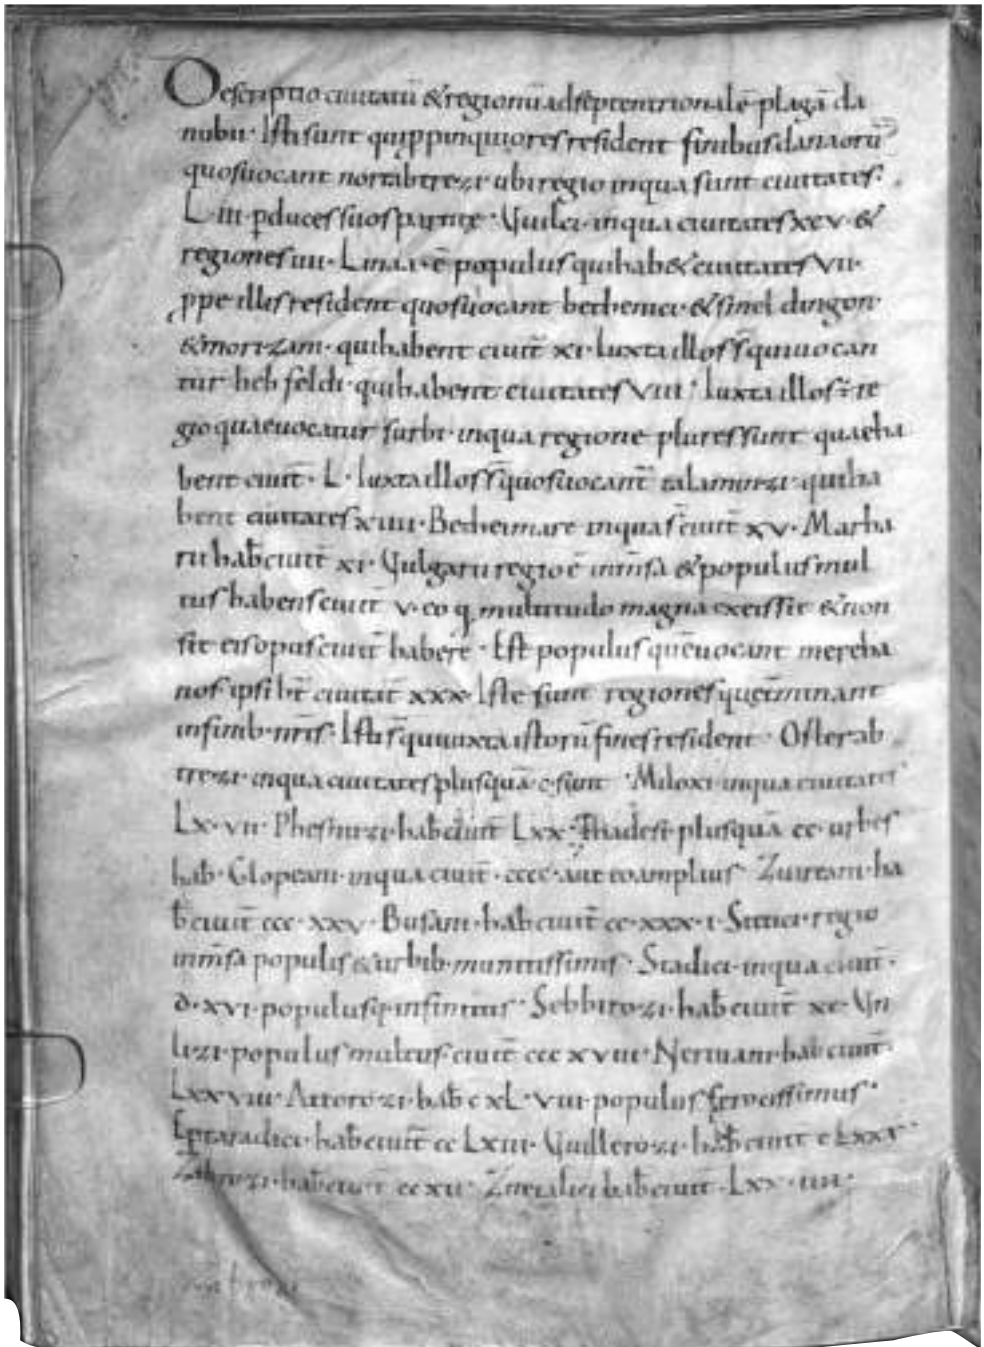 Descriptio ciuitatū & regionū ad septentrionalē plagā da
nubii · Isti sunt qui ppinquiores resident finibus danaorū
quos uocant nortabtrezi · ubi regio in qua sunt ciuitates ·
L·III · p duces suos partite · Vuilci · in qua ciuitates XCV · &
regiones IIII · Linaa · ē populus qui hab& ciuitates VII ·
ppe illis resident quos uocant bethenici · & smel dingon ·
& morizani · qui habent ciuit̄ XI · Iuxta illos s̄ qui uocan
tur hehfeldi · qui habent ciuitates VIII · Iuxta illos ē re
gio quae uocatur surbi · in qua regione plures sunt quae ha
bent ciuit̄ · L · Iuxta illos s̄ quos uocant talaminzi · qui ha
bent ciuitates XIIII · Beheimare in qua s̄ ciuit̄ XV · Marha
rii hab̄ ciuit̄ XI · Vulgarii regio ē inm̄sa & populus mul
tus habens ciuit̄ V · eo q multitudo magna ex eis sit & non
sit eis opus ciuit̄ habere · Est populus quē uocant mereha
nos · ipsi hn̄t ciuitat̄ XXX · Iste sunt regiones que t̄minant
in finib· nr̄is · Isti s̄ qui iuxta istorū fines resident · Osterab
trezi · in qua ciuitates plus quā ·C· sunt · Miloxi · in qua ciuitates
LX·VII · Phesnuzi · hab̄ ciuit̄ LXX · Thadesi · plus quā CC · urbes
hab̄ · Glopeani · in qua ciuit̄ · CCCC · aut eo amplius · Zuireani · ha
b̄ ciuit̄ CCC·XXV · Busani · hab̄ ciuit̄ CC·XXX·I · Sittici · regio
inm̄sa populis & urbib· munitissimis · Stadici · in qua ciuit̄ ·
D·XVI · populusq· infinitus · Sebbirozi · hab̄ ciuit̄ XC · Vn
lizi · populus multus · ciuit̄ CCC XVIII · Neriuani · hab̄ ciuit̄ ·
LXXVIII · Attorozi · hab̄ C XL·VIII · populus ferocissimus ·
Eptaradici · hab̄ ciuit̄ CC LXIII · Vuillerozi · hab̄ ciuit̄ C LXXX ·
Zabrozi · hab̄ ciuit̄ CC XII · Znetalici hab̄ ciuit̄ · LXX·IIII ·